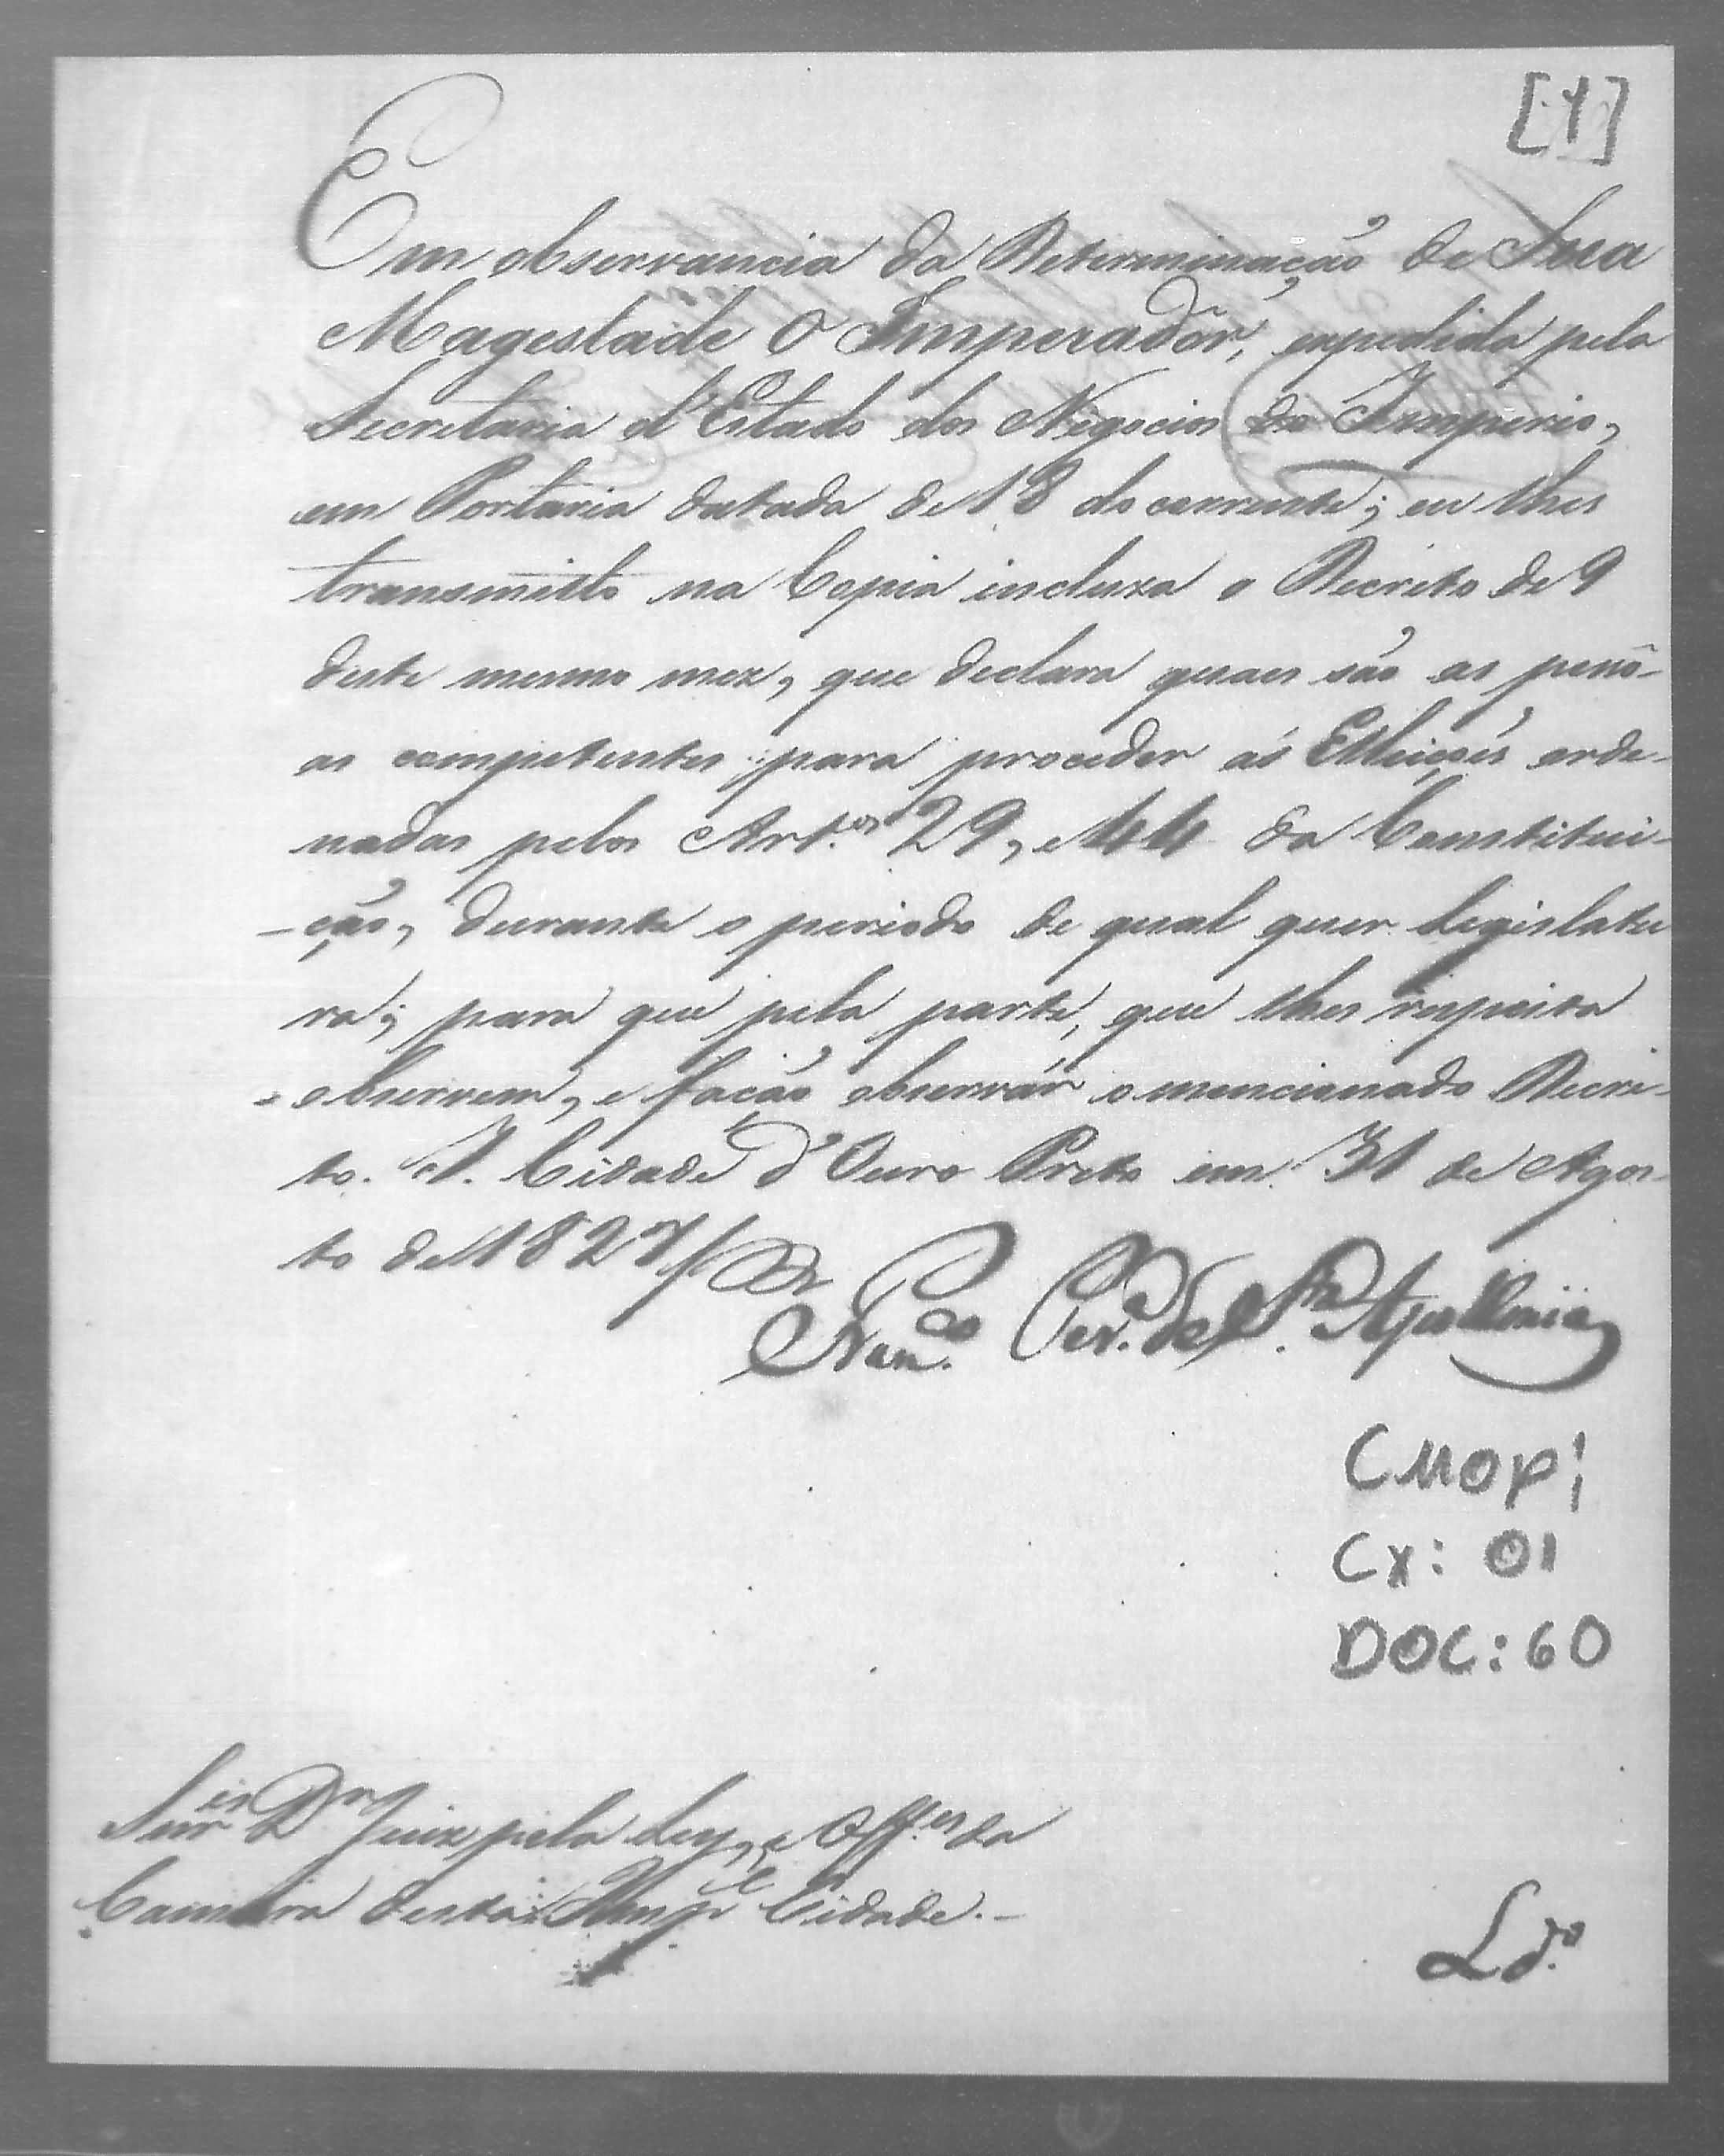 [1]
Em observancia da Determinação de Sua
Magestade O Imperadôr, expedida pela
Secretaria d'Estado dos Negocios do Imperio,
em Portaria datada de 18 do corrente; eu lhes
transmitto na Copia incluza o Decreto de 9
deste mesmo mez, que declara quaes são as pesso-
as competentes para proceder ás Elleições orde-
nadas pelos Art.os 29, e 44 da Constitui-
-ção, durante o periodo de qual quer Legislatu
ra; para que pela parte, que lhes respeita
observem, e fação observár o mencionado Decre-
to. I. Cidade d'Ouro Preto em 31 de Agos-
to de 1827
Fran.co Per.a de S.ta Apollonia
CMOP:
Cx: 01
DOC: 60
Snr.es D.or Juiz pela Ley, e Off.es da
Camara desta Imp.l Cidade.-
Ld.o